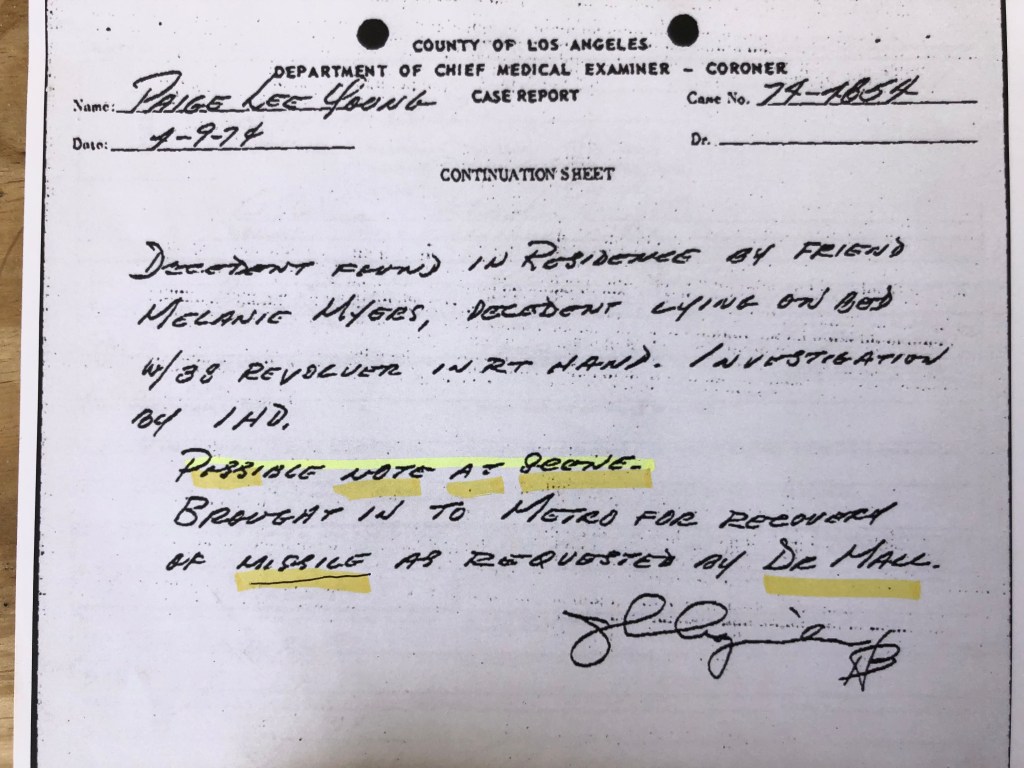 COUNTY OF LOS ANGELES
DEPARTMENT OF CHIEF MEDICAL EXAMINER – CORONER
Name: PAIGE LEE YOUNG CASE REPORT Case No. 74-4654
Date: 4-9-74 Dr.
CONTINUATION SHEET
DECEDENT FOUND IN RESIDENCE BY FRIEND
MELANIE MYERS, DECEDENT LYING ON BED
W/38 REVOLVER IN RT HAND. INVESTIGATION
BY IHD.
POSSIBLE NOTE AT SCENE.
BROUGHT IN TO METRO FOR RECOVERY
OF MISSILE AS REQUESTED BY DR MALL.